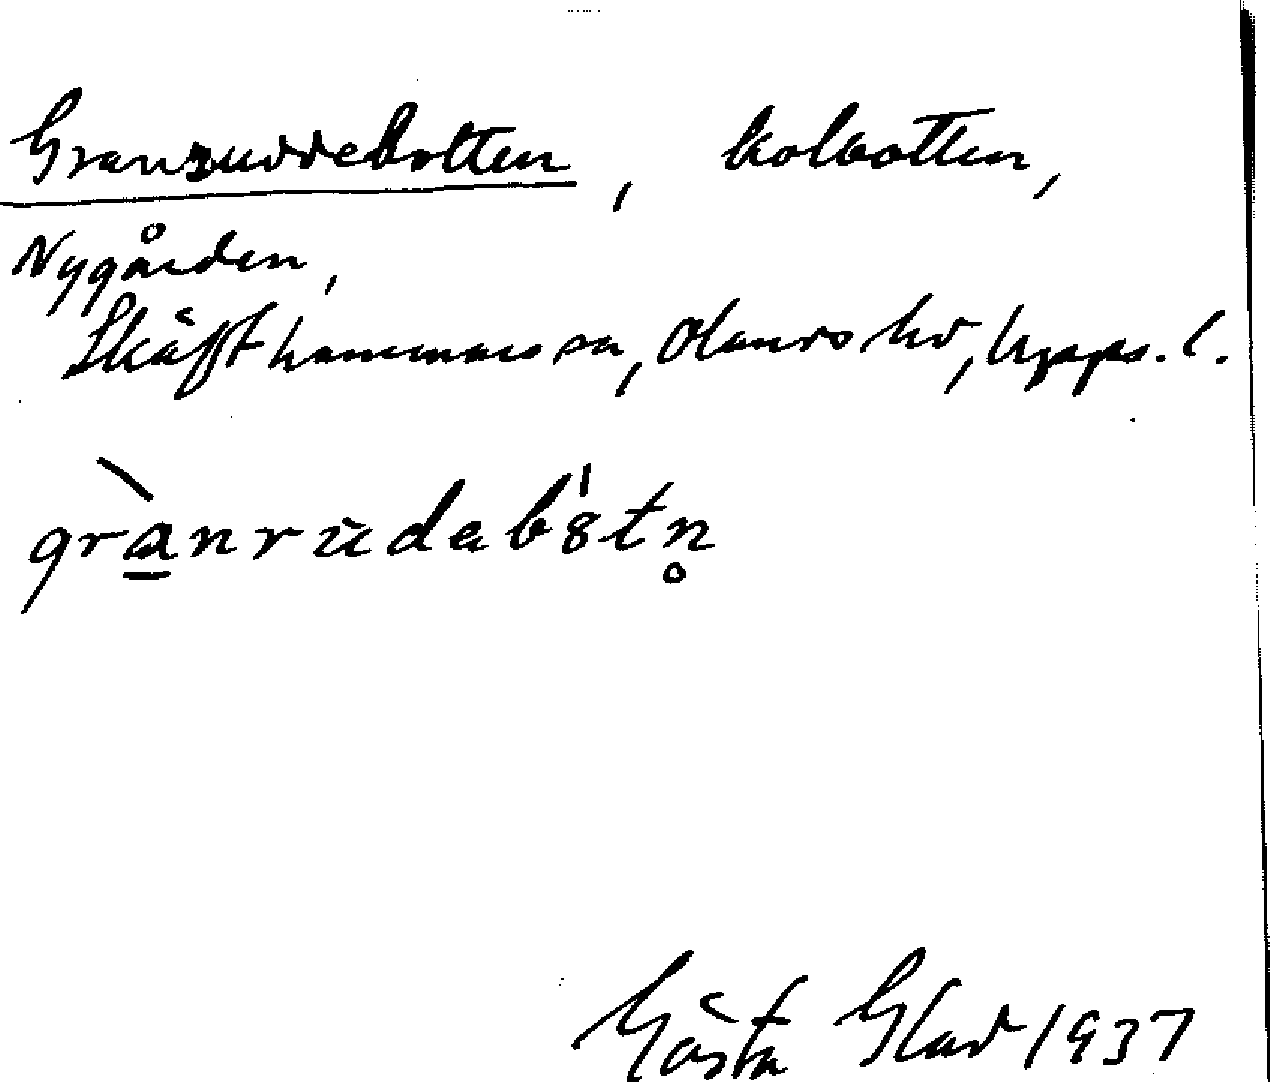 Granruddebotten, kolbotten,
Nygården,
Skäfthammars sn, Olands hd, Upps. l.
grànrudabòtn̥
Gösta Glad 1937